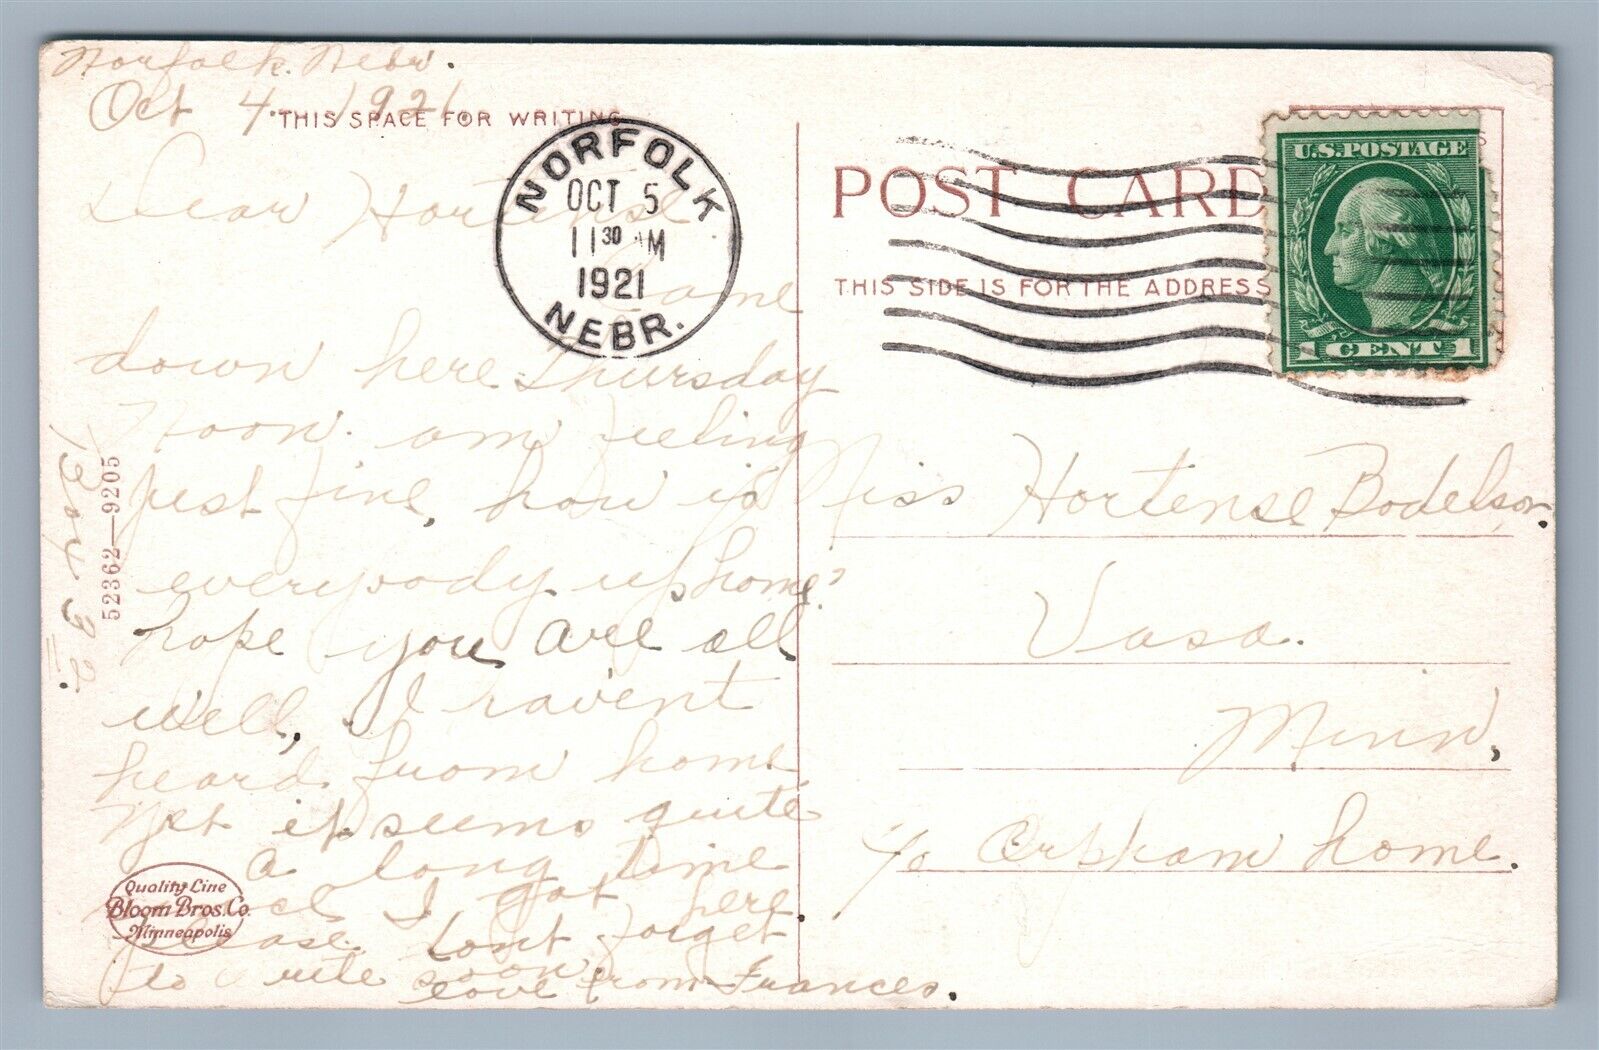 Norfolk. Nebr.
Oct 4. 1921
THIS SPACE FOR WRITING
NORFOLK
OCT 5
11 30 AM
1921
NEBR.
Dear Hortense
Came
down here Thursday
Noon. am feeling
just fine, how is
everybody up home?
hope you are all
well, I havent
heard from home
Yet it seems quite
a long time
since I got here
please. dont forget
to write soon
love from Frances.
Box 32.
52362—9205
Quality Line
Bloom Bros. Co.
Minneapolis
POST CARD
THIS SIDE IS FOR THE ADDRESS
U.S. POSTAGE
1 CENT 1
Miss Hortense Bodelson.
Vasa.
Minn,
c/o Orpham home.